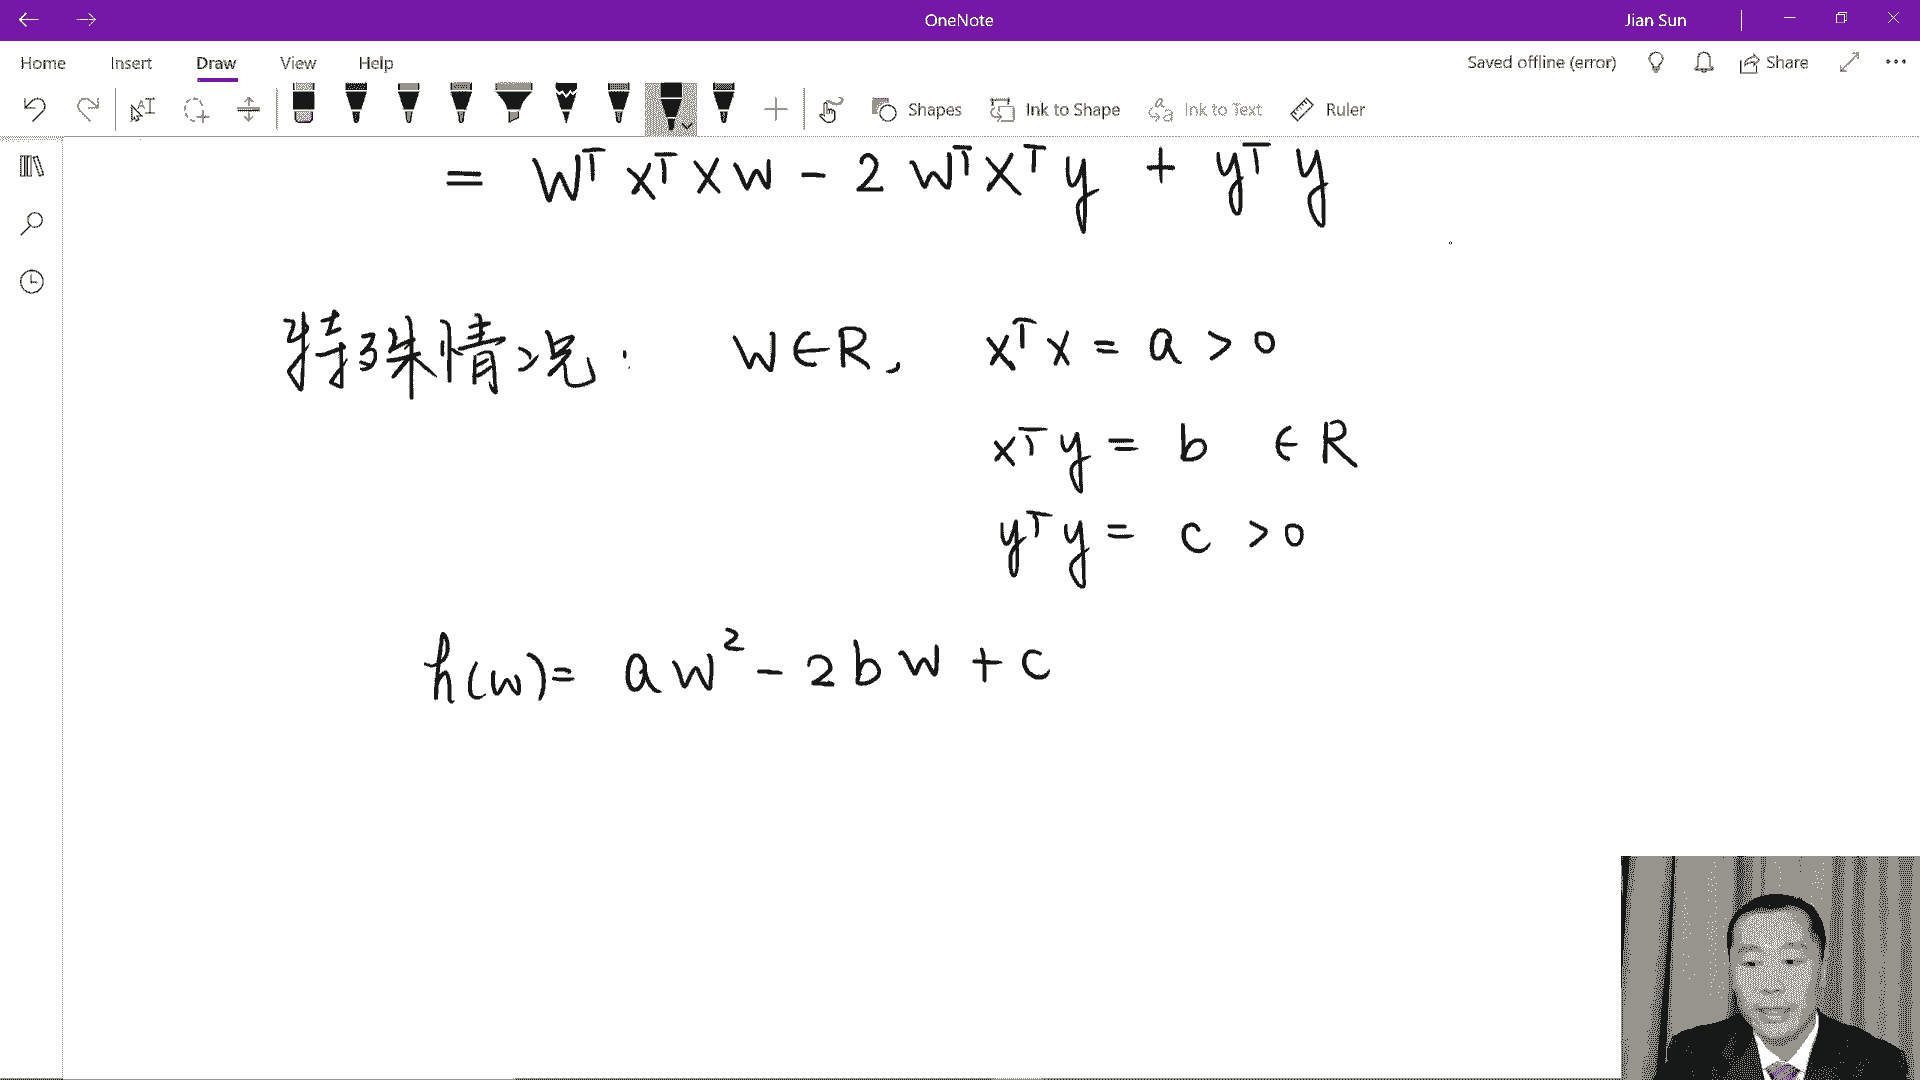 OneNote
Jian Sun
Home Insert Draw View Help
Saved offline (error) Share
Shapes Ink to Shape Ink to Text Ruler
= Wᵀ Xᵀ X W - 2 Wᵀ Xᵀ y + yᵀ y
特殊情况: W ∈ R, Xᵀ X = a > 0
Xᵀ y = b ∈ R
yᵀ y = c > 0
h(w) = a w² - 2 b w + c